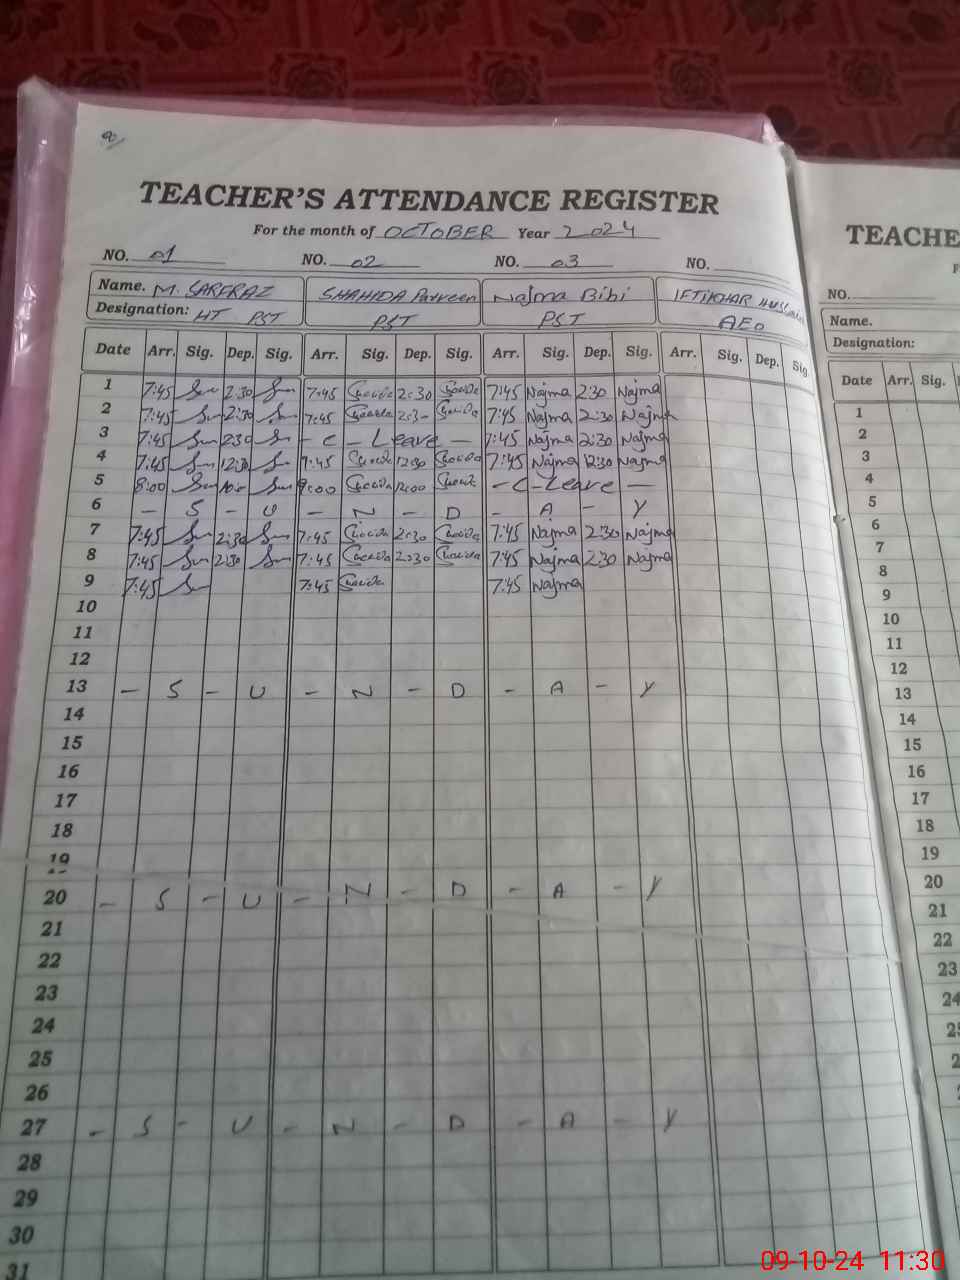 TEACHER'S ATTENDANCE REGISTER
For the month of OCTOBER Year 2024
NO. 01 NO. 02 NO. 03 NO.
Name. M. SARFRAZ SHAHIDA Parveen Najma Bibi IFTIKHAR Hussain
Designation: HT PST PST PST AEO
Date Arr. Sig. Dep. Sig. Arr. Sig. Dep. Sig. Arr. Sig. Dep. Sig. Arr. Sig. Dep. Sig.
1 7:45 2:30 7:45 2:30 7:45 Najma 2:30 Najma
2 7:45 2:30 7:45 2:3- 7:45 Najma 2:30 Najma
3 7:45 2:30 - C - Leave - 7:45 Najma 2:30 Najma
4 7:45 12:30 7:45 12:30 7:45 Najma 12:30 Najma
5 8:00 9:00 12:00 - C - Leave -
6 - S - U - N - D - A - Y
7 7:45 2:30 7:45 2:30 7:45 Najma 2:30 Najma
8 7:45 2:30 7:45 2:30 7:45 Najma 2:30 Najma
9 7:45 7:45 7:45 Najma
10
11
12
13 - S - U - N - D - A - Y
14
15
16
17
18
19
20 - S - U - N - D - A - Y
21
22
23
24
25
26
27 - S - U - N - D - A - Y
28
29
30
31
TEACHE
F
NO.
Name.
Designation:
Date Arr. Sig.
1
2
3
4
5
6
7
8
9
10
11
12
13
14
15
16
17
18
19
20
21
22
23
24
09-10-24 11:30